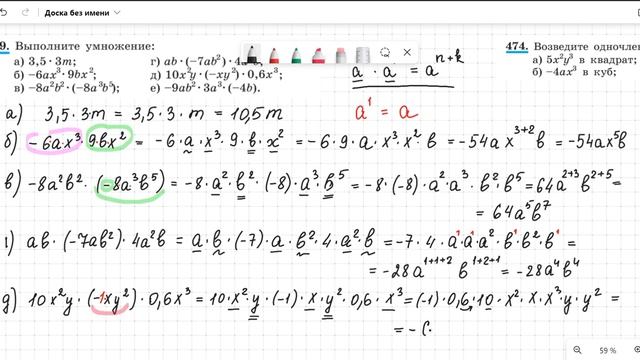 Доска без имени
9. Выполните умножение:
а) 3,5 · 3m;
б) −6ax³ · 9bx²;
в) −8a²b² · (−8a³b⁵);
г) ab · (−7ab²) · 4
д) 10x²y · (−xy²) · 0,6x³;
е) −9ab² · 3a³ · (−4b).
474. Возведите одночле
а) 5x²y³ в квадрат;
б) −4ax³ в куб;
a · a = a^(n+k)
a¹ = a
а) 3,5 · 3m = 3,5 · 3 · m = 10,5 m
б) −6a·x³ · 9·bx² = −6 · a · x³ · 9 · b · x² = −6 · 9 · a · x³ · x² · b = −54a x³⁺² b = −54ax⁵b
в) −8a²b² · (−8a³b⁵) = −8 · a² · b² · (−8) · a³ · b⁵ = −8 · (−8) · a² · a³ · b² · b⁵ = 64a²⁺³ b²⁺⁵ =
= 64a⁵b⁷
ab · (−7ab²) · 4a²b = a · b · (−7) · a · b² · 4 · a² · b = −7 · 4 · a¹ · a¹ · a² · b¹ · b² · b¹ =
= −28a¹⁺¹⁺² b¹⁺²⁺¹ = −28a⁴b⁴
д) 10x²y · (−1xy²) · 0,6x³ = 10 · x² · y · (−1) · x · y² · 0,6 · x³ = (−1) · 0,6 · 10 · x² · x · x³ · y · y² =
= −
59 %